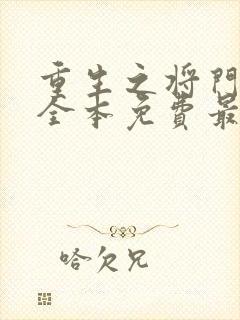 重生之将门
全本免费最
哈欠兄